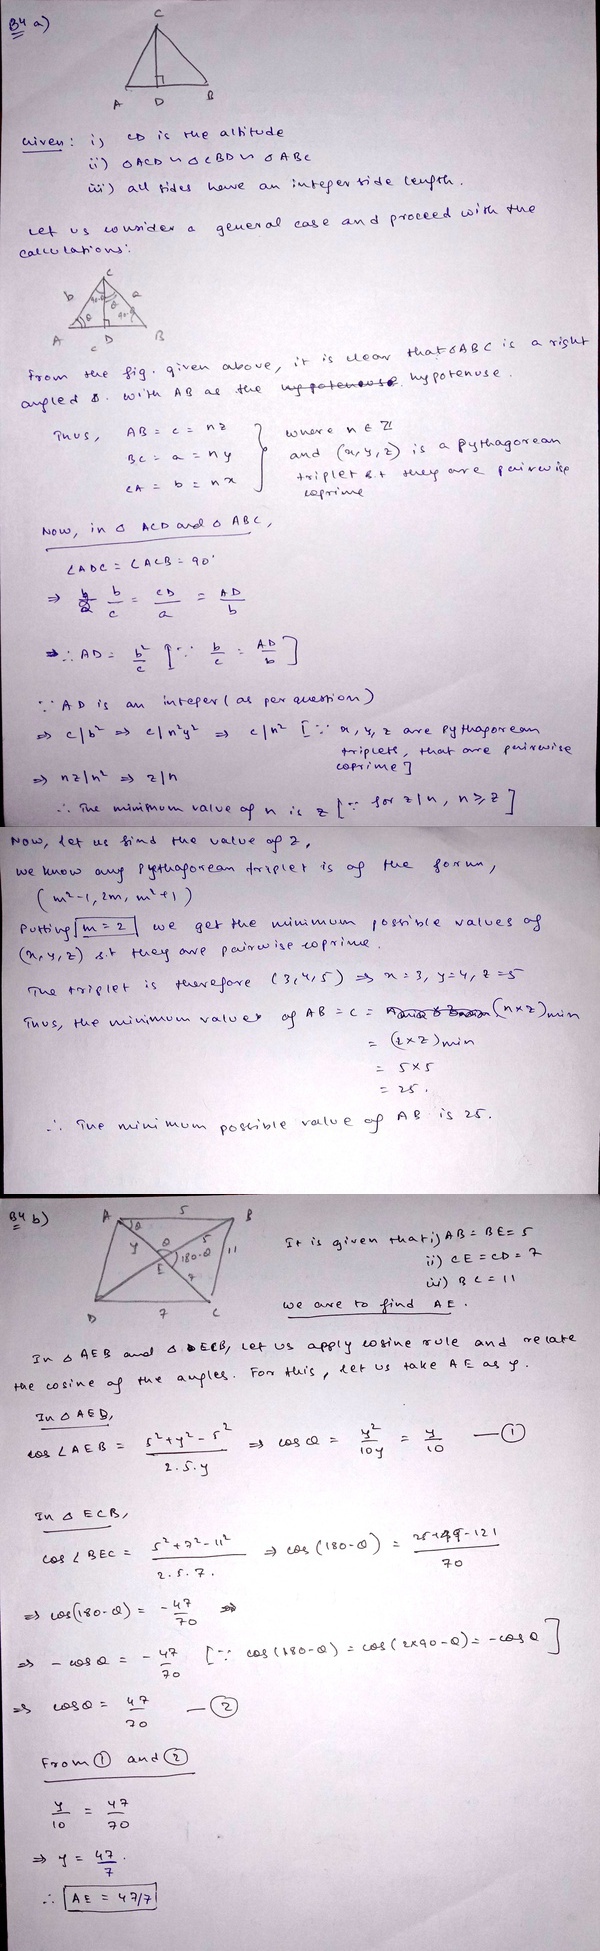 B4 a)
C
A D B
Given: i) CD is the altitude
ii) △ACD ∽ △CBD ∽ △ABC
iii) all sides have an integer side length.
Let us consider a general case and proceed with the
calculations:
C
b 90-θ θ a
A θ 90-θ B
c D
From the fig. given above, it is clear that △ABC is a right
angled △. with AB as the hypotenuse.
Thus, AB = c = nz
BC = a = ny
CA = b = nx
where n ∈ ℤ
and (x, y, z) is a pythagorean
triplet s.t they are pairwise
coprime
Now, in △ ACD and △ ABC,
∠ADC = ∠ACB = 90°
⇒ b/c = CD/a = AD/b
⇒ ∴ AD = b²/c [∵ b/c = AD/b]
∵ AD is an integer (as per question)
⇒ c/b² ⇒ c/n²y² ⇒ c/n² [∵ x, y, z are Pythagorean
triplets, that are pairwise
coprime]
⇒ nz/n² ⇒ z/n
∴ The minimum value of n is z [∵ for z/n, n ≥ z]
Now, let us find the value of z,
we know any Pythagorean triplet is of the form,
(m²-1, 2m, m²+1)
Putting m = 2 we get the minimum possible values of
(x, y, z) s.t they are pairwise coprime.
The triplet is therefore (3, 4, 5) ⇒ x = 3, y = 4, z = 5
Thus, the minimum values of AB = c = (n×z)min
= (z×z)min
= 5×5
= 25.
∴ The minimum possible value of AB is 25.
B4 b)
A 5 B
θ
y θ 5
E 180-θ 11
7
D 7 C
It is given that i) AB = BE = 5
ii) CE = CD = 7
iii) BC = 11
We are to find AE.
In △ AEB and △ ECB, let us apply cosine rule and relate
the cosine of the angles. For this, let us take AE as y.
In △ AEB,
cos ∠AEB = 5² + y² - 5² / 2.5.y ⇒ cos θ = y²/10y = y/10 — ①
In △ ECB,
cos ∠BEC = 5² + 7² - 11² / 2.5.7. ⇒ cos (180-θ) = 25+49-121 / 70
⇒ cos(180-θ) = -47/70 ⇒
⇒ - cos θ = -47/70 [∵ cos (180-θ) = cos (2×90-θ) = -cos θ]
⇒ cos θ = 47/70 — ②
From ① and ②
y/10 = 47/70
⇒ y = 47/7.
∴ AE = 47/7